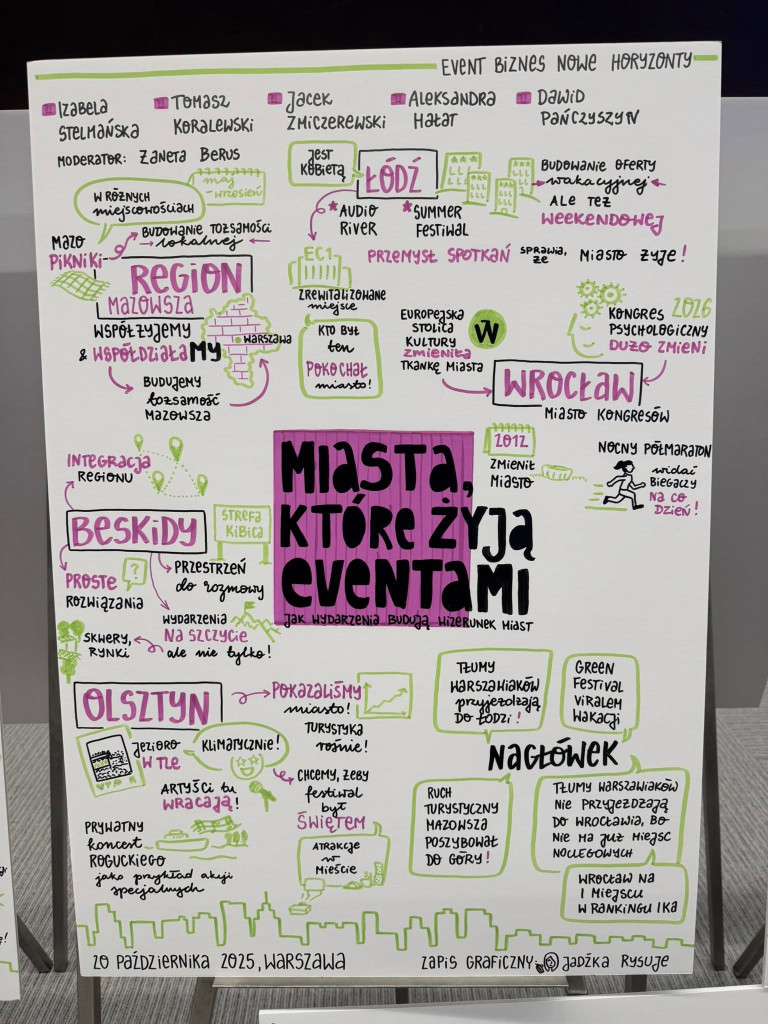 EVENT BIZNES NOWE HORYZONTY
IZABELA
STELMAŃSKA
TOMASZ
KORALEWSKI
JACEK
ZMICZEREWSKI
ALEKSANDRA
HAŁAT
DAWID
PAŃCZYSZYN
MODERATOR: ŻANETA BERUS
W RÓŻNYCH
miejscowościach
maj
wrzesień
MAZO
PIKNIKI
BUDOWANIE TOŻSAMOŚCI
lokalnej
REGION
MAZOWSZA
WSPÓŁŻYJEMY
& WSPÓŁDZIAŁAMY
WARSZAWA
BUDUJEMY
tożsamość
MAZOWSZA
JEST
KOBIETĄ
ŁÓDŹ
* AUDIO
RIVER
* SUMMER
FESTIWAL
BUDOWANIE OFERTY
wakacyjnej
ALE TEŻ
WEEKENDOWEJ
PRZEMYSŁ SPOTKAŃ SPRAWIA, ŻE MIASTO ŻYJE!
EC1
ZREWITALIZOWANE
miejsce
KTO BYŁ
ten
POKOCHAŁ
miasto!
EUROPEJSKA
STOLICA
KULTURY
ZMIENIŁA
TKANKĘ MIASTA
W
KONGRES 2026
PSYCHOLOGICZNY
DUŻO ZMIENI
WROCŁAW
MIASTO KONGRESÓW
2012
ZMIENIŁ
MIASTO
NOCNY PÓŁMARATON
widać
BIEGACZY
NA CO
DZIEŃ!
INTEGRACJA
REGIONU
BESKIDY
STREFA
KIBICA
PROSTE
ROZWIĄZANIA
?
PRZESTRZEŃ
do rozmowy
WYDARZENIA
NA SZCZYCIE
ale nie tylko!
SKWERY,
RYNKI
MIASTA,
KTÓRE ŻYJĄ
EVENTAMI
JAK WYDARZENIA BUDUJĄ WIZERUNEK MIAST
OLSZTYN
POKAZALIŚMY
miasto!
TURYSTYKA
rośnie!
JEZIORO
W TLE
KLIMATYCZNIE!
ARTYŚCI tu
WRACAJĄ!
CHCEMY, ŻEBY
festiwal
był
ŚWIĘTEM
ATRAKCJE
w
MIEŚCIE
PRYWATNY
koncert
ROGUCKIEGO
jako przykład akcji
specjalnych
TŁUMY
WARSZAWIAKÓW
przyjeżdżają
DO ŁODZI!
GREEN
FESTIVAL
VIRALEM
WAKACJI
NAGŁÓWEK
RUCH
TURYSTYCZNY
MAZOWSZA
POSZYBOWAŁ
DO GÓRY!
TŁUMY WARSZAWIAKÓW
NIE PRZYJEŻDŻAJĄ
DO WROCŁAWIA, BO
NIE MA JUŻ MIEJSC
NOCLEGOWYCH
WROCŁAW NA
1 MIEJSCU
W RANKINGU IKA
20 PAŹDZIERNIKA 2025, WARSZAWA
ZAPIS GRAFICZNY: JADŹKA RYSUJE